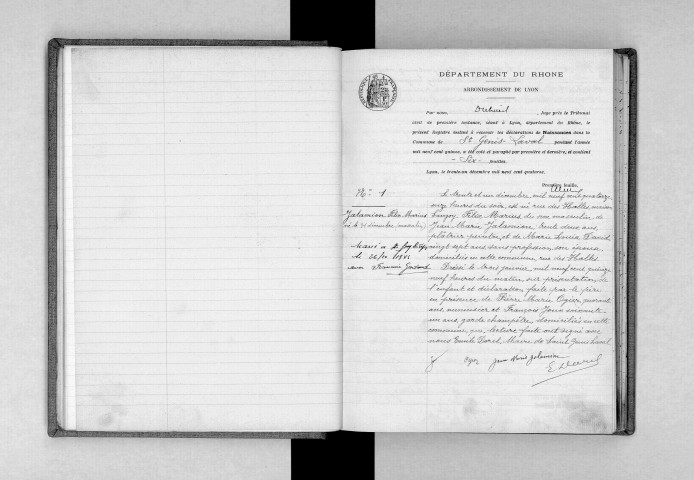 DÉPARTEMENT DU RHONE
ARRONDISSEMENT DE LYON
Par nous, , Juge près le Tribunal
civil de première instance, séant à Lyon, département du Rhône, le
présent Registre destiné à recevoir les déclarations de Naissances dans la
Commune de St Genis-Laval pendant l'année
mil neuf cent quinze, a été coté et paraphé par première et dernière, et contient
- Six - feuilles.
Lyon, le trente-un décembre mil neuf cent quatorze.
Première feuille,
N° 1
Jalamion Félix Marius
né le 31 décembre
Marié à
le 26/10 1945
avec Francine
Le trente et un décembre mil neuf cent quatorze
onze heures du soir, est né rue des Halles maison
Félix Marius du sexe masculin de
Jean Marie Jalamion, trente deux ans,
plâtrier peintre, et de Marie Louise David,
vingt sept ans sans profession, son épouse
domiciliés en cette commune, rue des Halles
Dressé le trois janvier mil neuf cent quinze
neuf heures du matin sur présentation de
l'enfant et déclaration faite par le père
en présence de Pierre Marie Ogier, quarante
ans, menuisier et François Joux soixante
un ans, garde champêtre, domiciliés en cette
commune, qui, lecture faite ont signé avec
nous Emile Dorel, Maire de Saint Genis Laval
Ogier Jean Marie Jalamion
E. Dorel